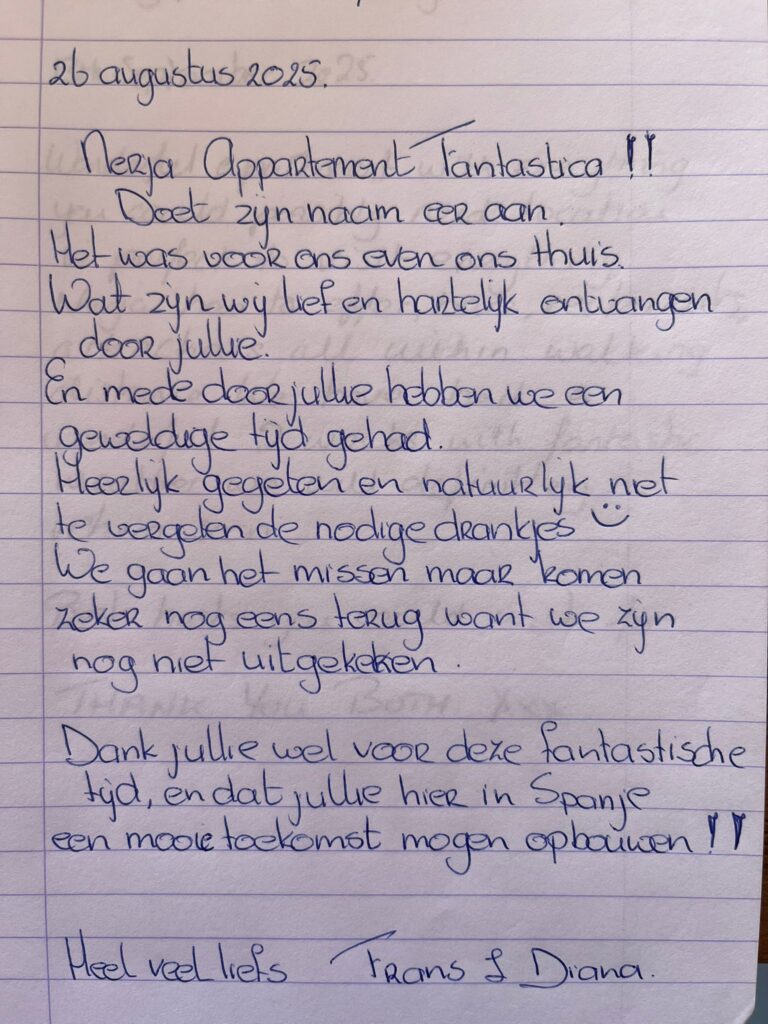 26 augustus 2025.
Nerja Appartement Fantastica !!
Doet zijn naam eer aan.
Het was voor ons even ons thuis.
Wat zijn wij lief en hartelijk ontvangen
door jullie.
En mede door jullie hebben we een
geweldige tijd gehad.
Heerlijk gegeten en natuurlijk niet
te vergeten de nodige drankjes
We gaan het missen maar komen
zeker nog eens terug want we zijn
nog niet uitgekeken.
Dank jullie wel voor deze fantastische
tijd, en dat jullie hier in Spanje
een mooie toekomst mogen opbouwen !!
Heel veel liefs Frans & Diana.